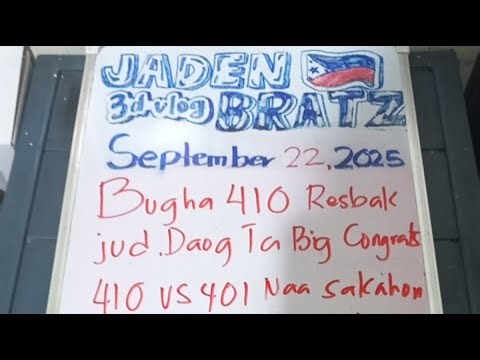 JADEN
3d vlog BRATZ
September 22, 2025
Bugha 410 Resbak
jud. Daog Ta Big Congrats
410 VS 401 Naa sakahon